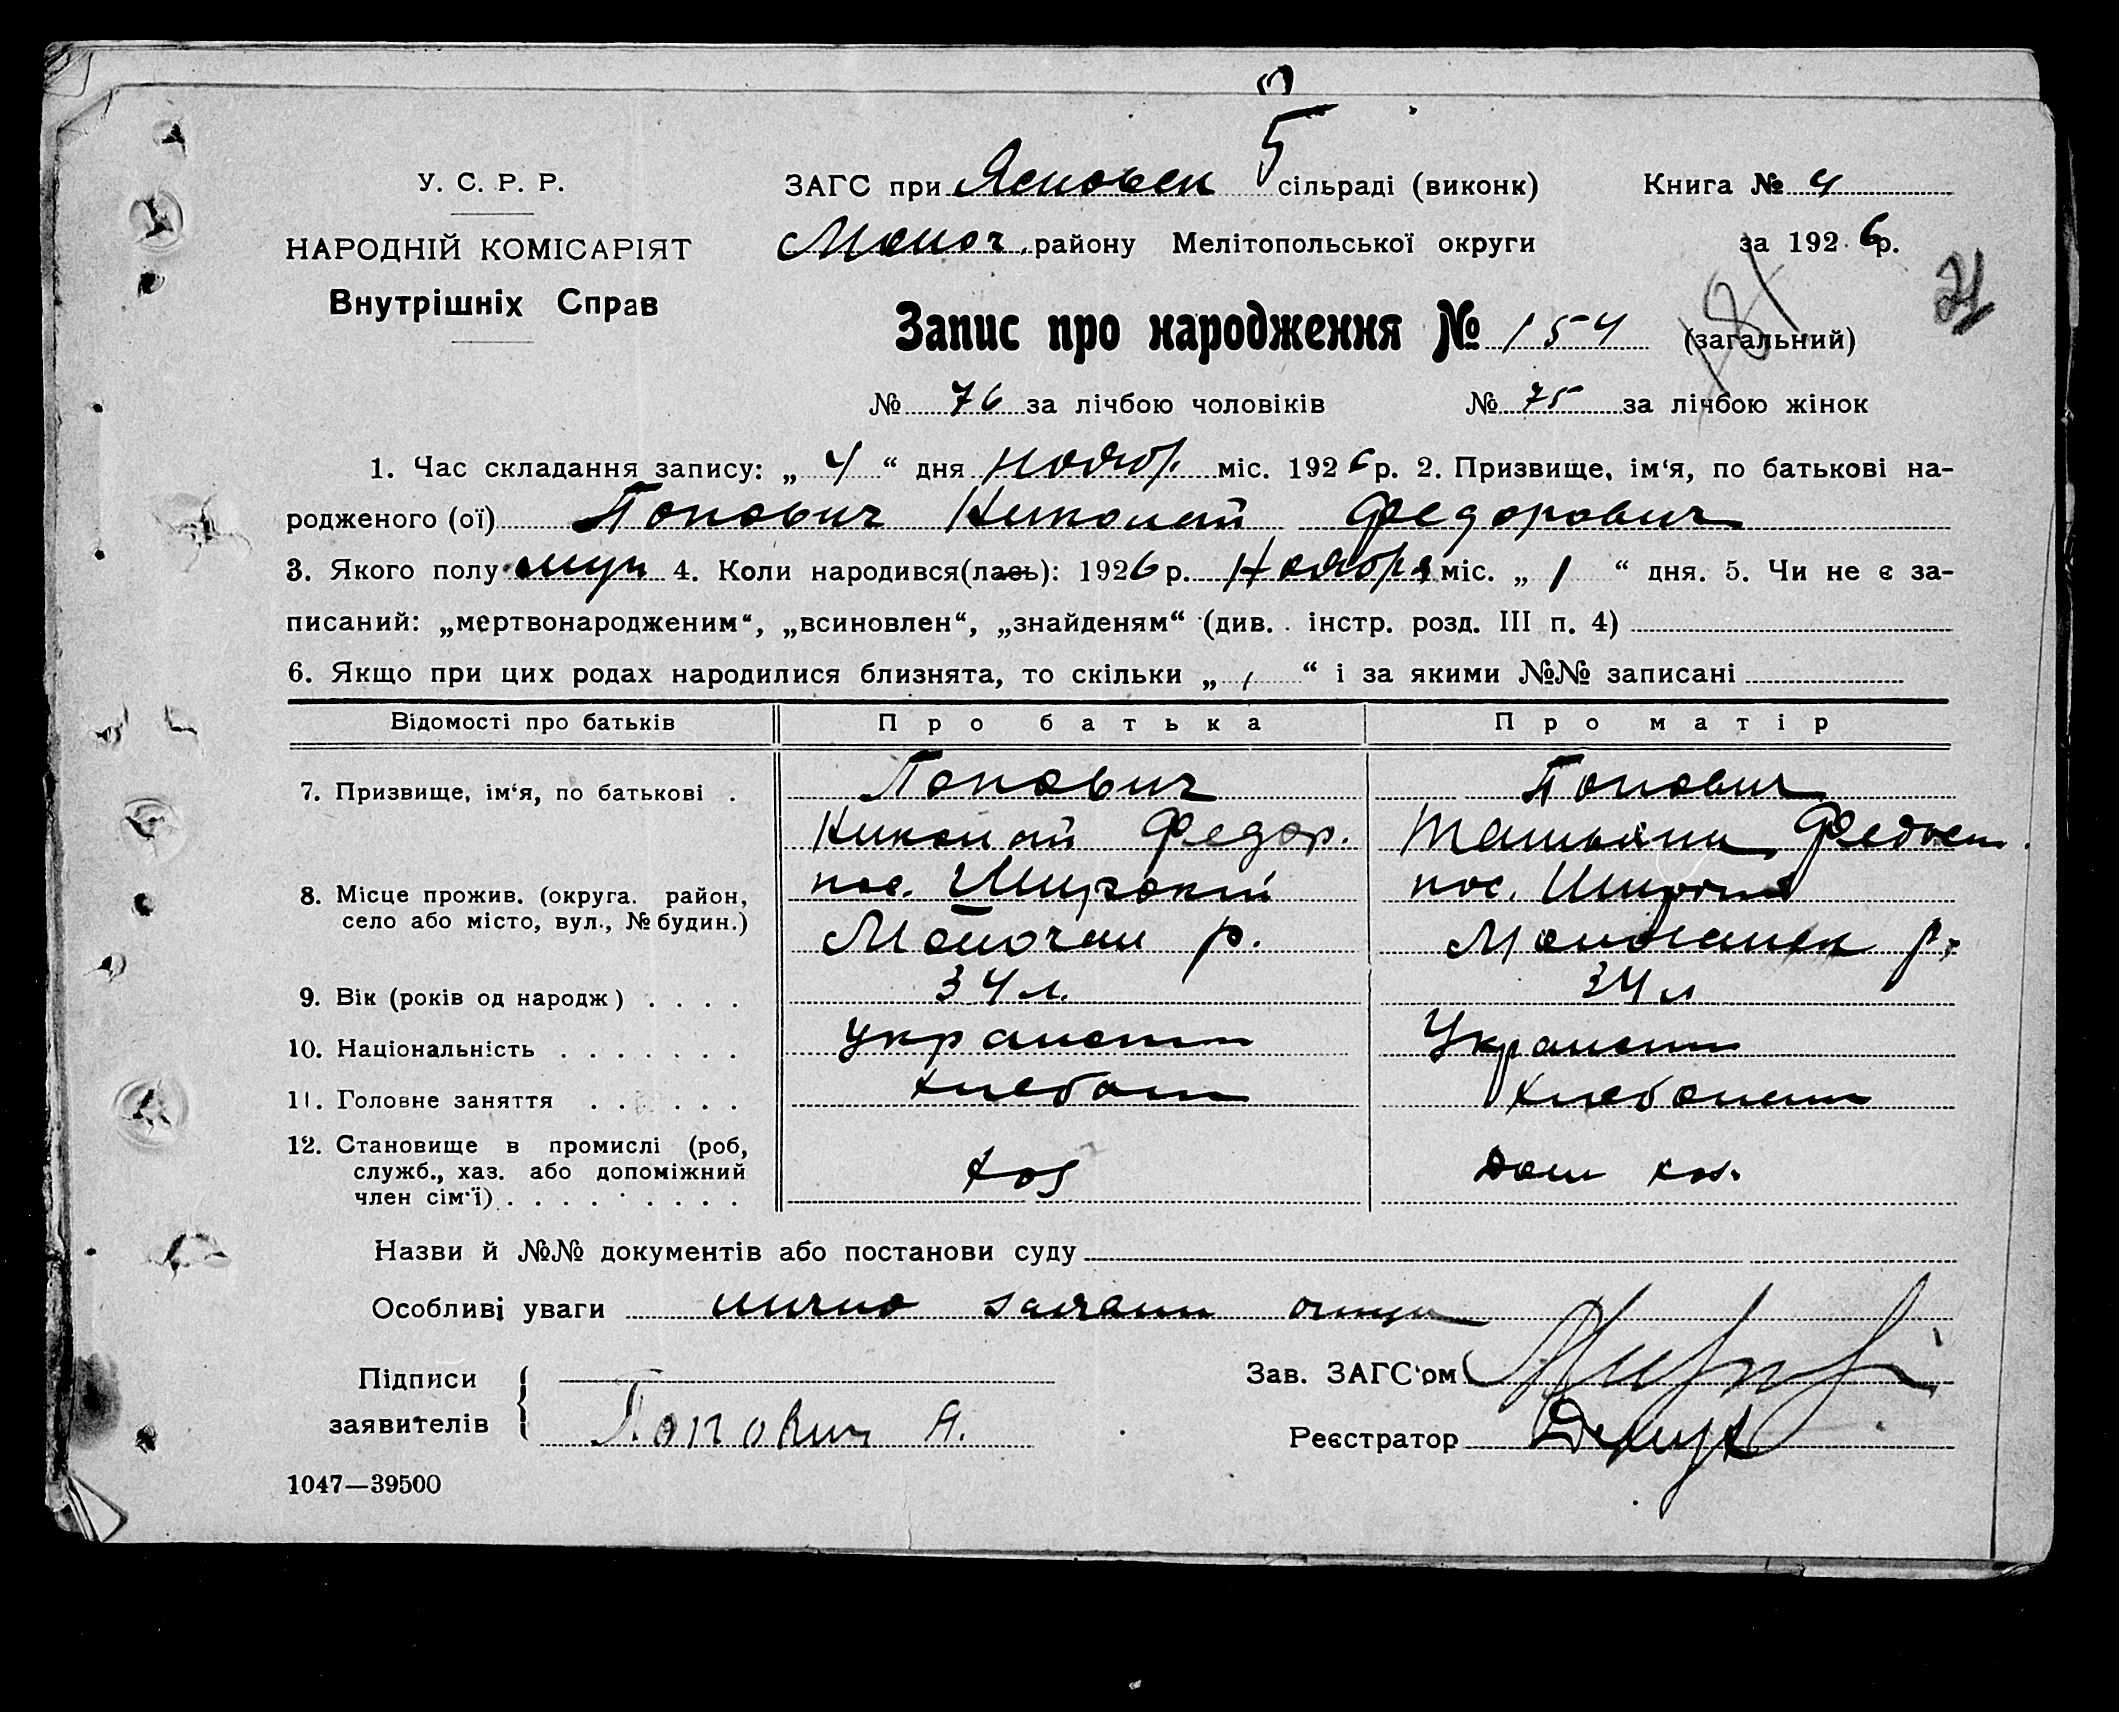 5
У. С. Р. Р. ЗАГС при Ясновск сільраді (виконк) Книга № 4
НАРОДНІЙ КОМІСАРІЯТ Молоч. району Мелітопольської округи за 1926 р.
Внутрішніх Справ
181
21
Запис про народження № 154 (загальний)
№ 76 за лічбою чоловіків № 75 за лічбою жінок
1. Час складання запису: „ 4 “ дня нояб. міс. 1926 р. 2. Призвище, ім‘я, по батькові на-
родженого (ої) Попович Николай Федорович
3. Якого полу муж 4. Коли народився(лась): 1926 р. Ноября міс. „ 1 “ дня. 5. Чи не є за-
писаний: „мертвонародженим“, „всиновлен“, „знайденям“ (див. інстр. розд. III п. 4)
6. Якщо при цих родах народилися близнята, то скільки „ “ і за якими №№ записані
Відомості про батьків Про батька Про матір
7. Призвище, ім‘я, по батькові . Попович Попович
Николай Федор. Татьяна
8. Місце прожив. (округа. район, пос. Широкий пос.
село або місто, вул., № будин.) Молочан р. р.
9. Вік (років од народж) . . . . 34 л. 34 л
10. Національність . . . . . . . украинс Украинс
11. Головне заняття . . . . . . хлебоп хлебопаш
12. Становище в промислі (роб,
служб., хаз. або допоміжний хоз Дом хоз.
член сім‘ї) . . . . . . . . .
Назви й №№ документів або постанови суду
Особливі уваги лично отца
Підписи Зав. ЗАГС‘ом
заявителів Попович Реєстратор
1047—39500